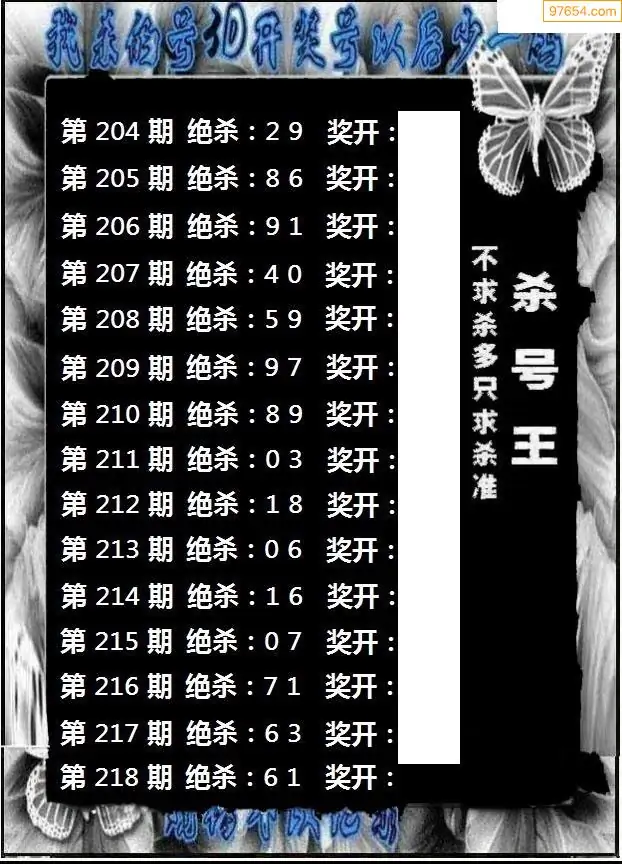 97654.com
我杀的号3D开奖号以后少一码
第 204 期 绝杀：2 9 奖开：
第 205 期 绝杀：8 6 奖开：
第 206 期 绝杀：9 1 奖开：
第 207 期 绝杀：4 0 奖开：
第 208 期 绝杀：5 9 奖开：
第 209 期 绝杀：9 7 奖开：
第 210 期 绝杀：8 9 奖开：
第 211 期 绝杀：0 3 奖开：
第 212 期 绝杀：1 8 奖开：
第 213 期 绝杀：0 6 奖开：
第 214 期 绝杀：1 6 奖开：
第 215 期 绝杀：0 7 奖开：
第 216 期 绝杀：7 1 奖开：
第 217 期 绝杀：6 3 奖开：
第 218 期 绝杀：6 1 奖开：
杀号王
不求杀多只求杀准